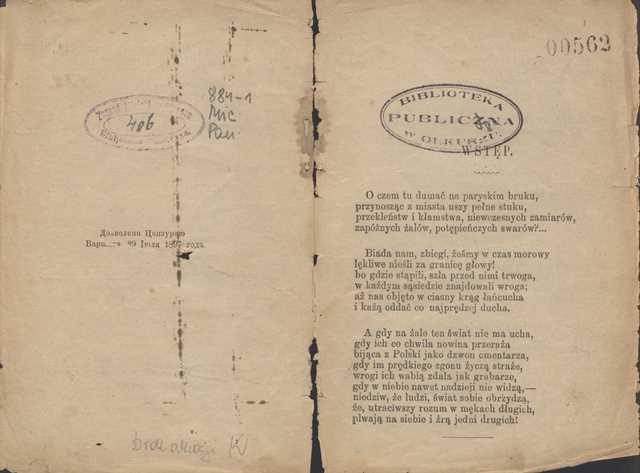 486
884-1
Mic
Pan.
Дозволено Цензурою
Іюля
годъ.
00562
BIBLIOTEKA
PUBLICZNA
W OLKUSZU
WSTĘP.
O czem tu dumać na paryskim bruku,
przynosząc z miasta uszy pełne stuku,
przekleństw i kłamstwa, niewczesnych zamiarów,
zapóźnych żalów, potępieńczych swarów?...
Biada nam, zbiegi, żeśmy w czas morowy
lękliwe nieśli za granicę głowy!
bo gdzie stąpili, szła przed nimi trwoga,
w każdym sąsiedzie znajdowali wroga;
aż nas objęto w ciasny krąg łańcucha
i każą oddać co najprędzej ducha.
A gdy na żale ten świat nie ma ucha,
gdy ich co chwila nowina przeraża
bijąca z Polski jako dzwon cmentarza,
gdy im prędkiego zgonu życzą straże,
wrogi ich wabią zdala jak grabarze,
gdy w niebie nawet nadzieji nie widzą,—
niedziw, że ludzi, świat sobie obrzydzą,
że, utraciwszy rozum w mękach długich,
plwają na siebie i żrą jedni drugich!